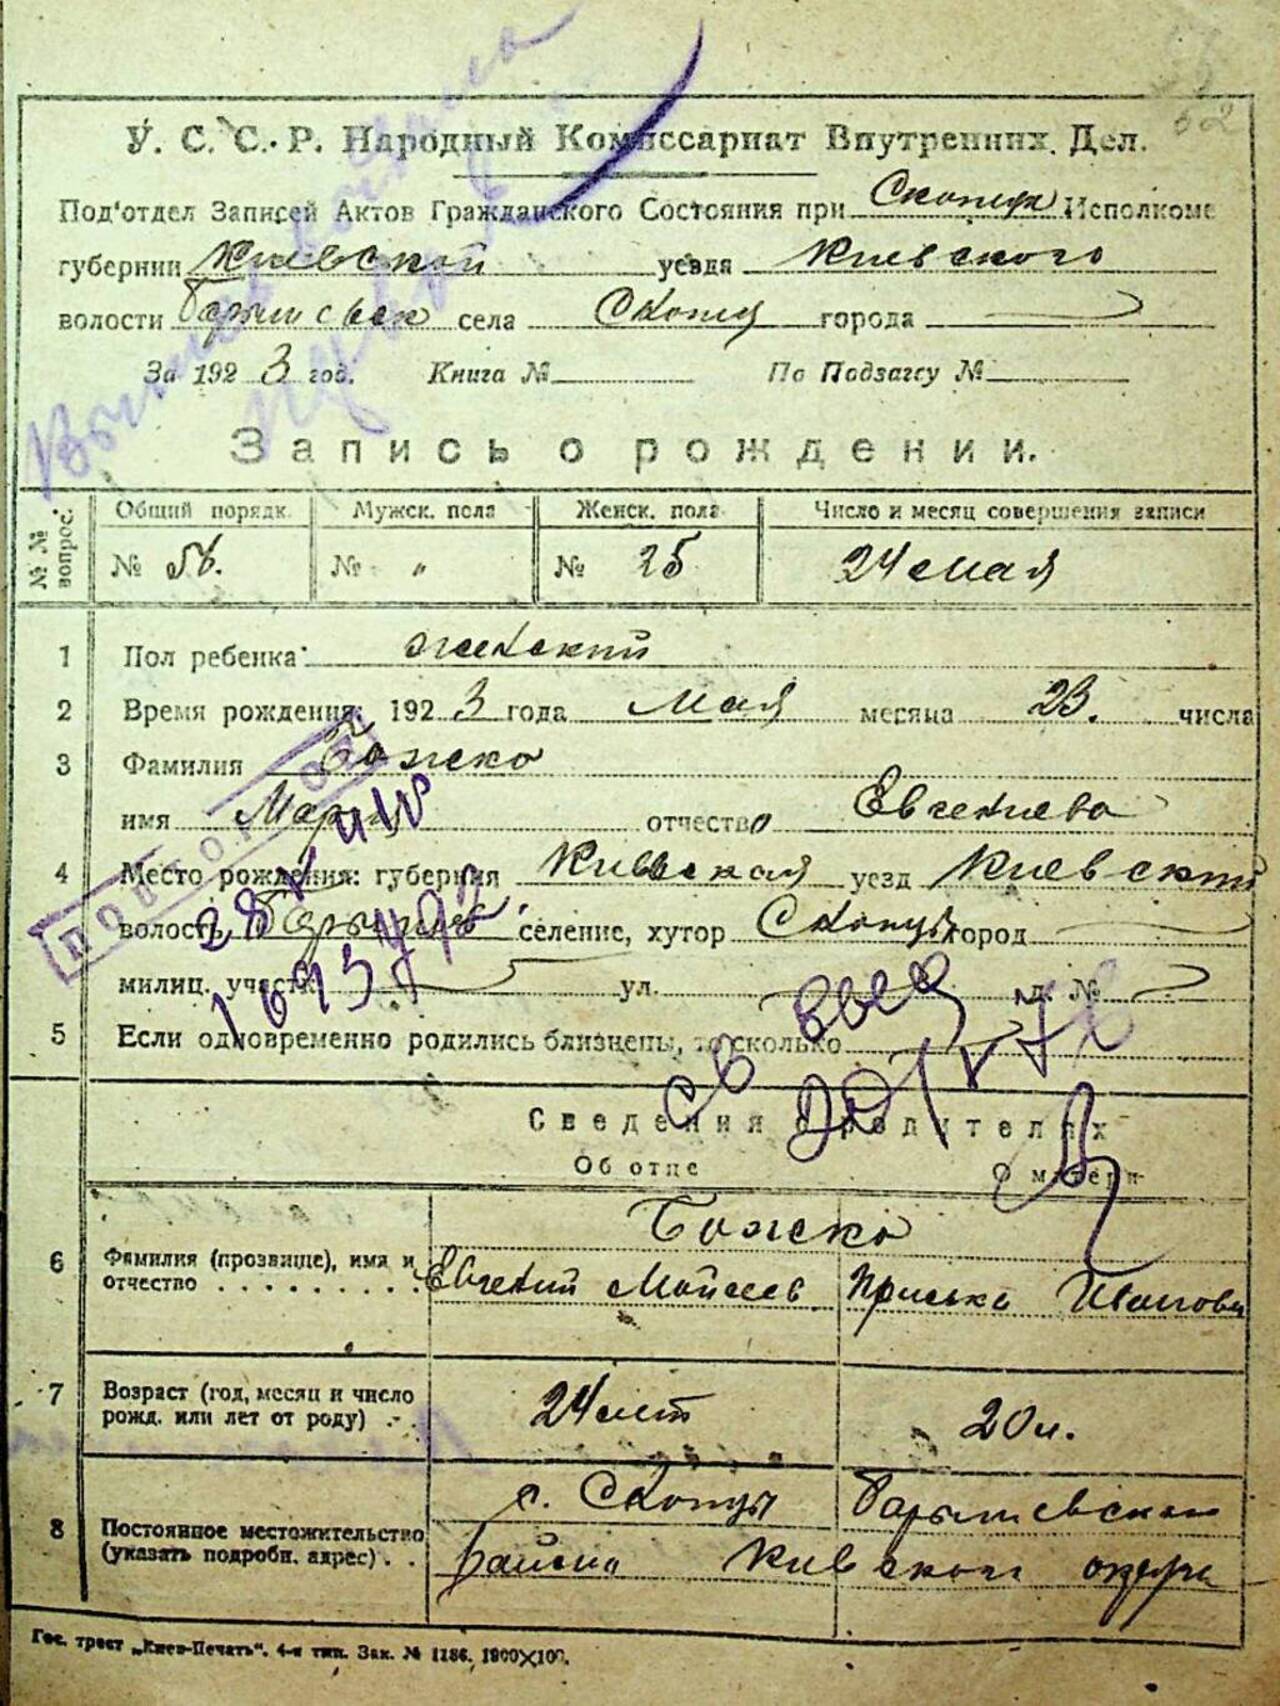 62
У. С. С. Р. Народный Комиссариат Внутренних Дел.
Под'отдел Записей Актов Гражданского Состояния при Исполкоме
губернии Киевской уезда Киевского
волости села Скопцы города
За 1923 год. Книга № По Подзагсу №
Запись о рождении.
№ № вопрос. Общий порядк. Мужск. пола Женск. пола Число и месяц совершения записи
№ 56. № " № 25 24 мая
1 Пол ребенка: женский
2 Время рождения: 1923 года Мая месяца 23. числа
3 Фамилия Божко
имя Мария отчество Евгениева
4 Место рождения: губерния Киевская уезд Киевский
волость селение, хутор Скопцы город
милиц. участк. ул. д. №
5 Если одновременно родились близнецы, то сколько
Сведения о родителях
Об отце О матери
Божко
6 Фамилия (прозвище), имя и отчество Евгений Мойсеев Приська Иванова
7 Возраст (год, месяц и число рожд. или лет от роду) 24 лет 20 л.
8 Постоянное местожительство (указать подробн. адрес) с. Скопцы Барышевского
района Киевского округа
Гос. трест „Киев-Печать“. 4-я тип. Зак. № 1186. 1900×100.
ПОВТОРНОЕ